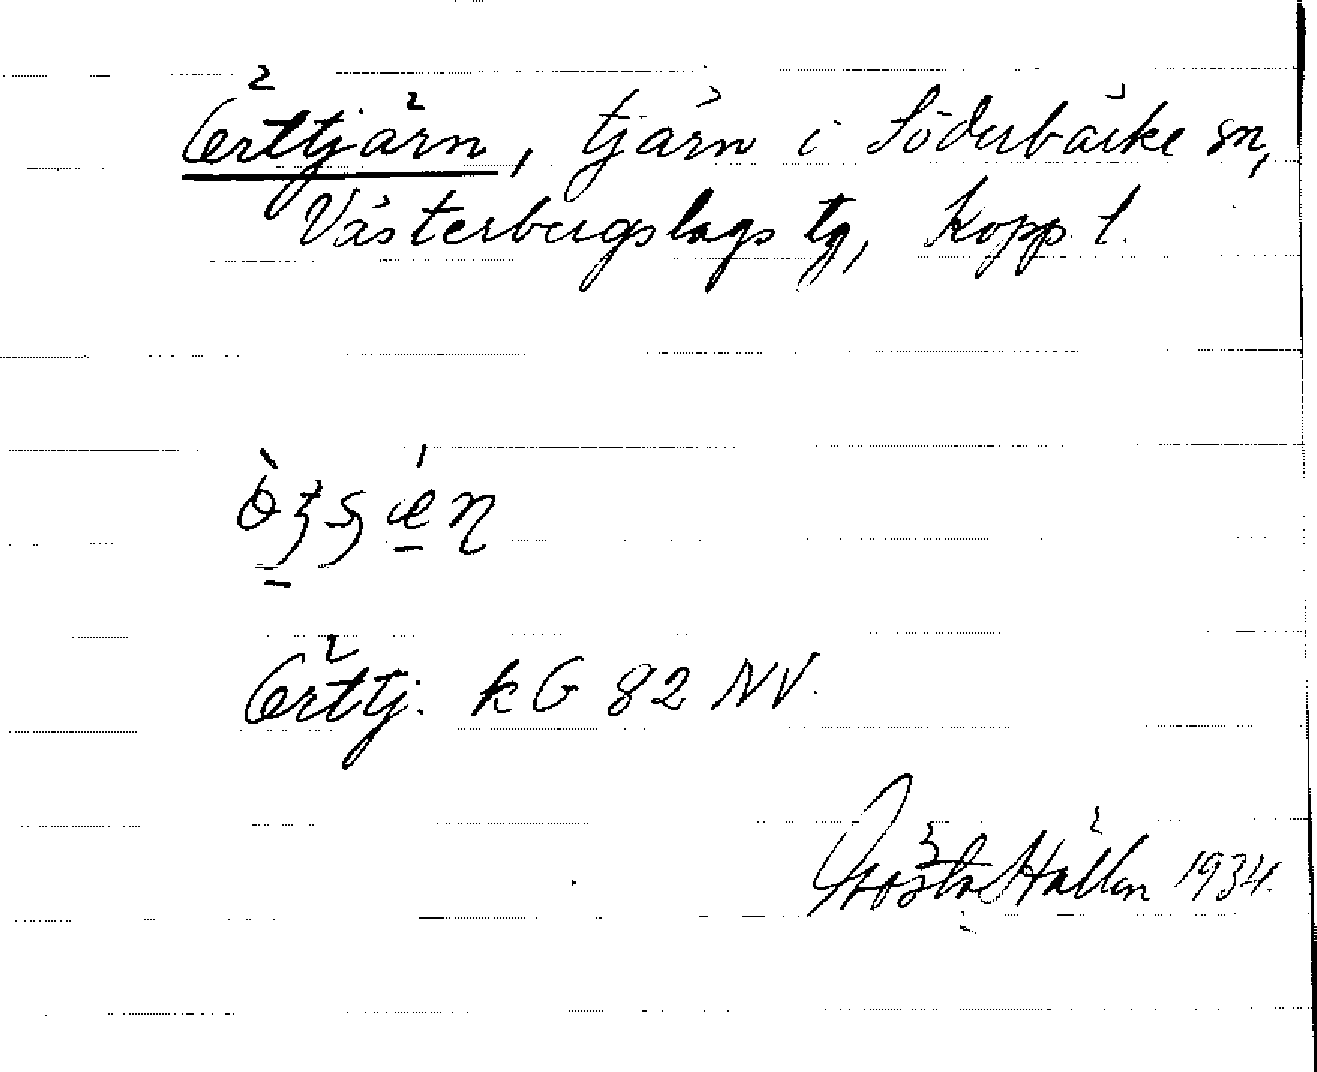 Örttjärn, tjärn i Söderbärke sn,
Västerbergslags tg, Kopp. l.
Örttj. k G 82 NV.
Gösta Hallén 1934.